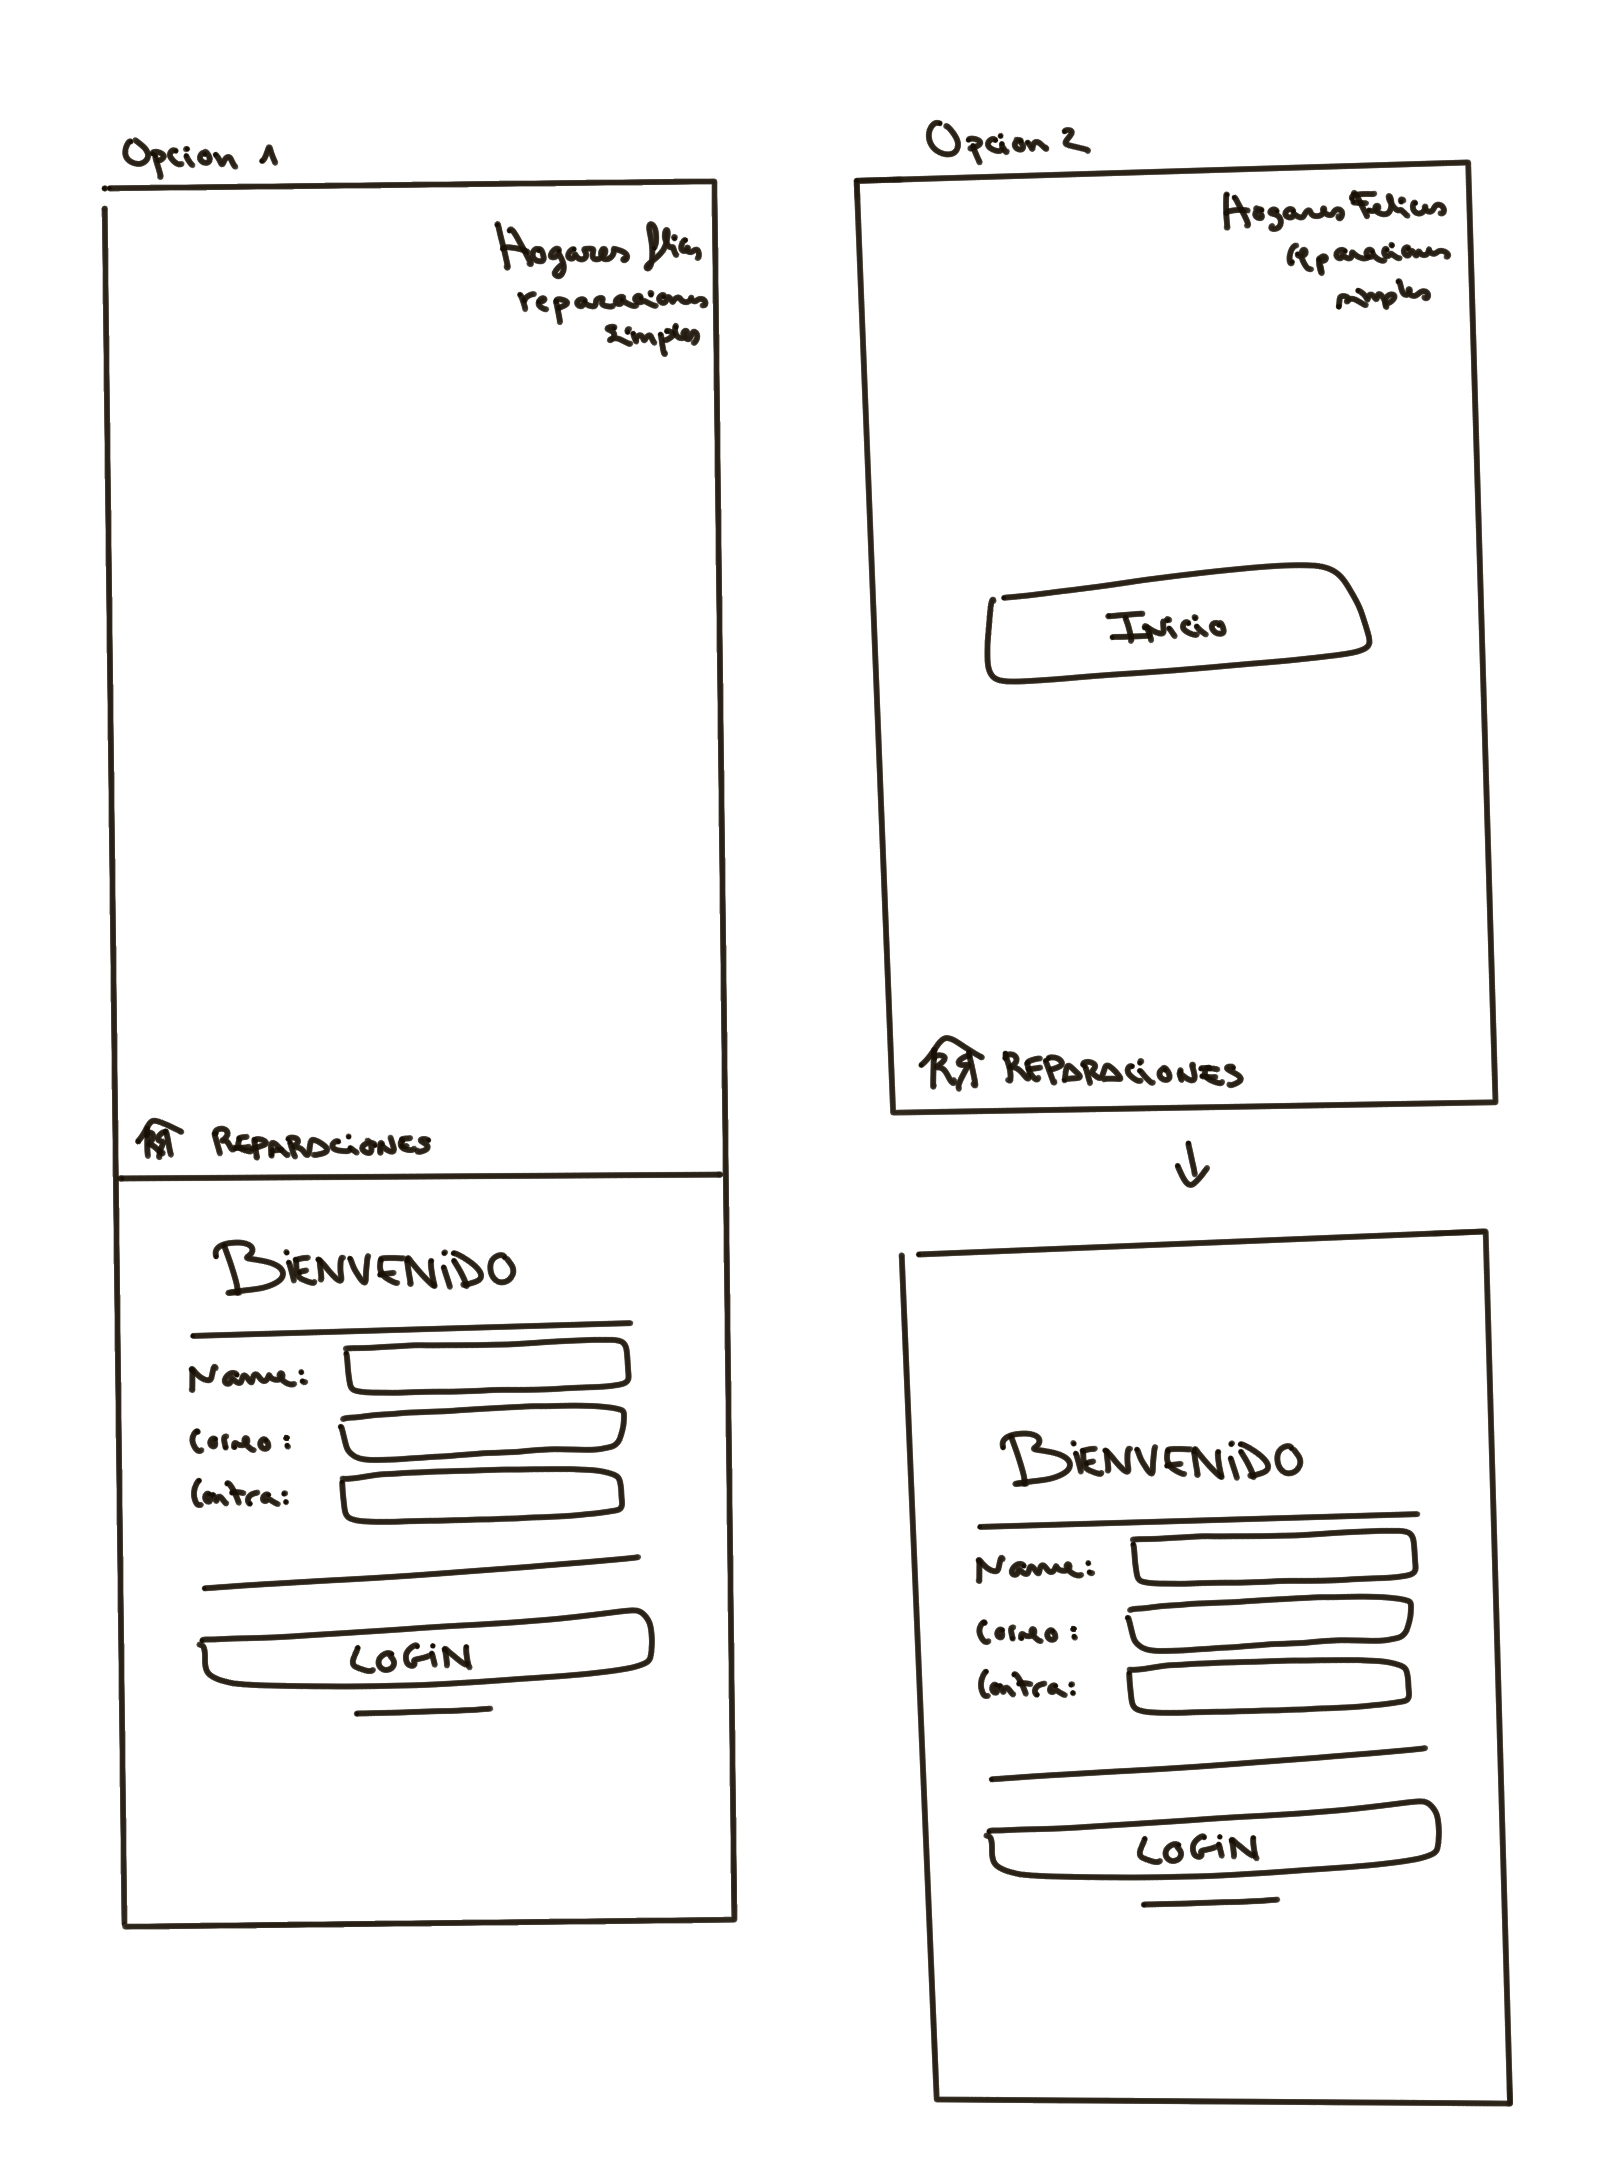 Opcion 1
Hogares flics
reparaciones
simples
RR REPARACIONES
BIENVENIDO
Name:
Correo:
Contra:
LOGIN
Opcion 2
Hogares Felices
reparaciones
simples
Inicio
RR REPARACIONES
BIENVENIDO
Name:
Correo:
Contra:
LOGIN